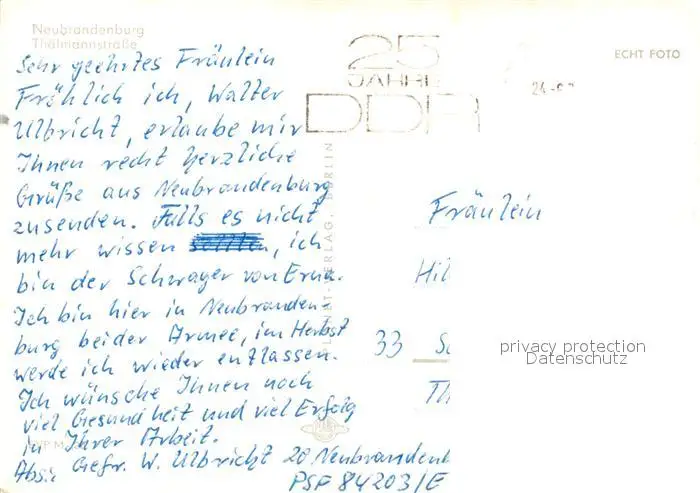 Neubrandenburg
Thälmannstraße
25
JAHRE
DDR
ECHT FOTO
Sehr geehrtes Fräulein
Fröhlich ich, Walter
Ulbricht, erlaube mir
Ihnen recht herzliche
Grüße aus Neubrandenburg
zusenden. Falls es nicht
mehr wissen sollten, ich
bin der Schwager von Erna.
Ich bin hier in Neubranden-
burg beider Armee, im Herbst
werde ich wieder entlassen.
Ich wünsche Ihnen noch
viel Gesundheit und viel Erfolg
in Ihrer Arbeit.
Abs.: Gefr. W. Ulbricht 20 Neubrandenb
PSF 84203/E
PLANET-VERLAG, BERLIN
Fräulein
Hil
33 Sc
Th
privacy protection
Datenschutz